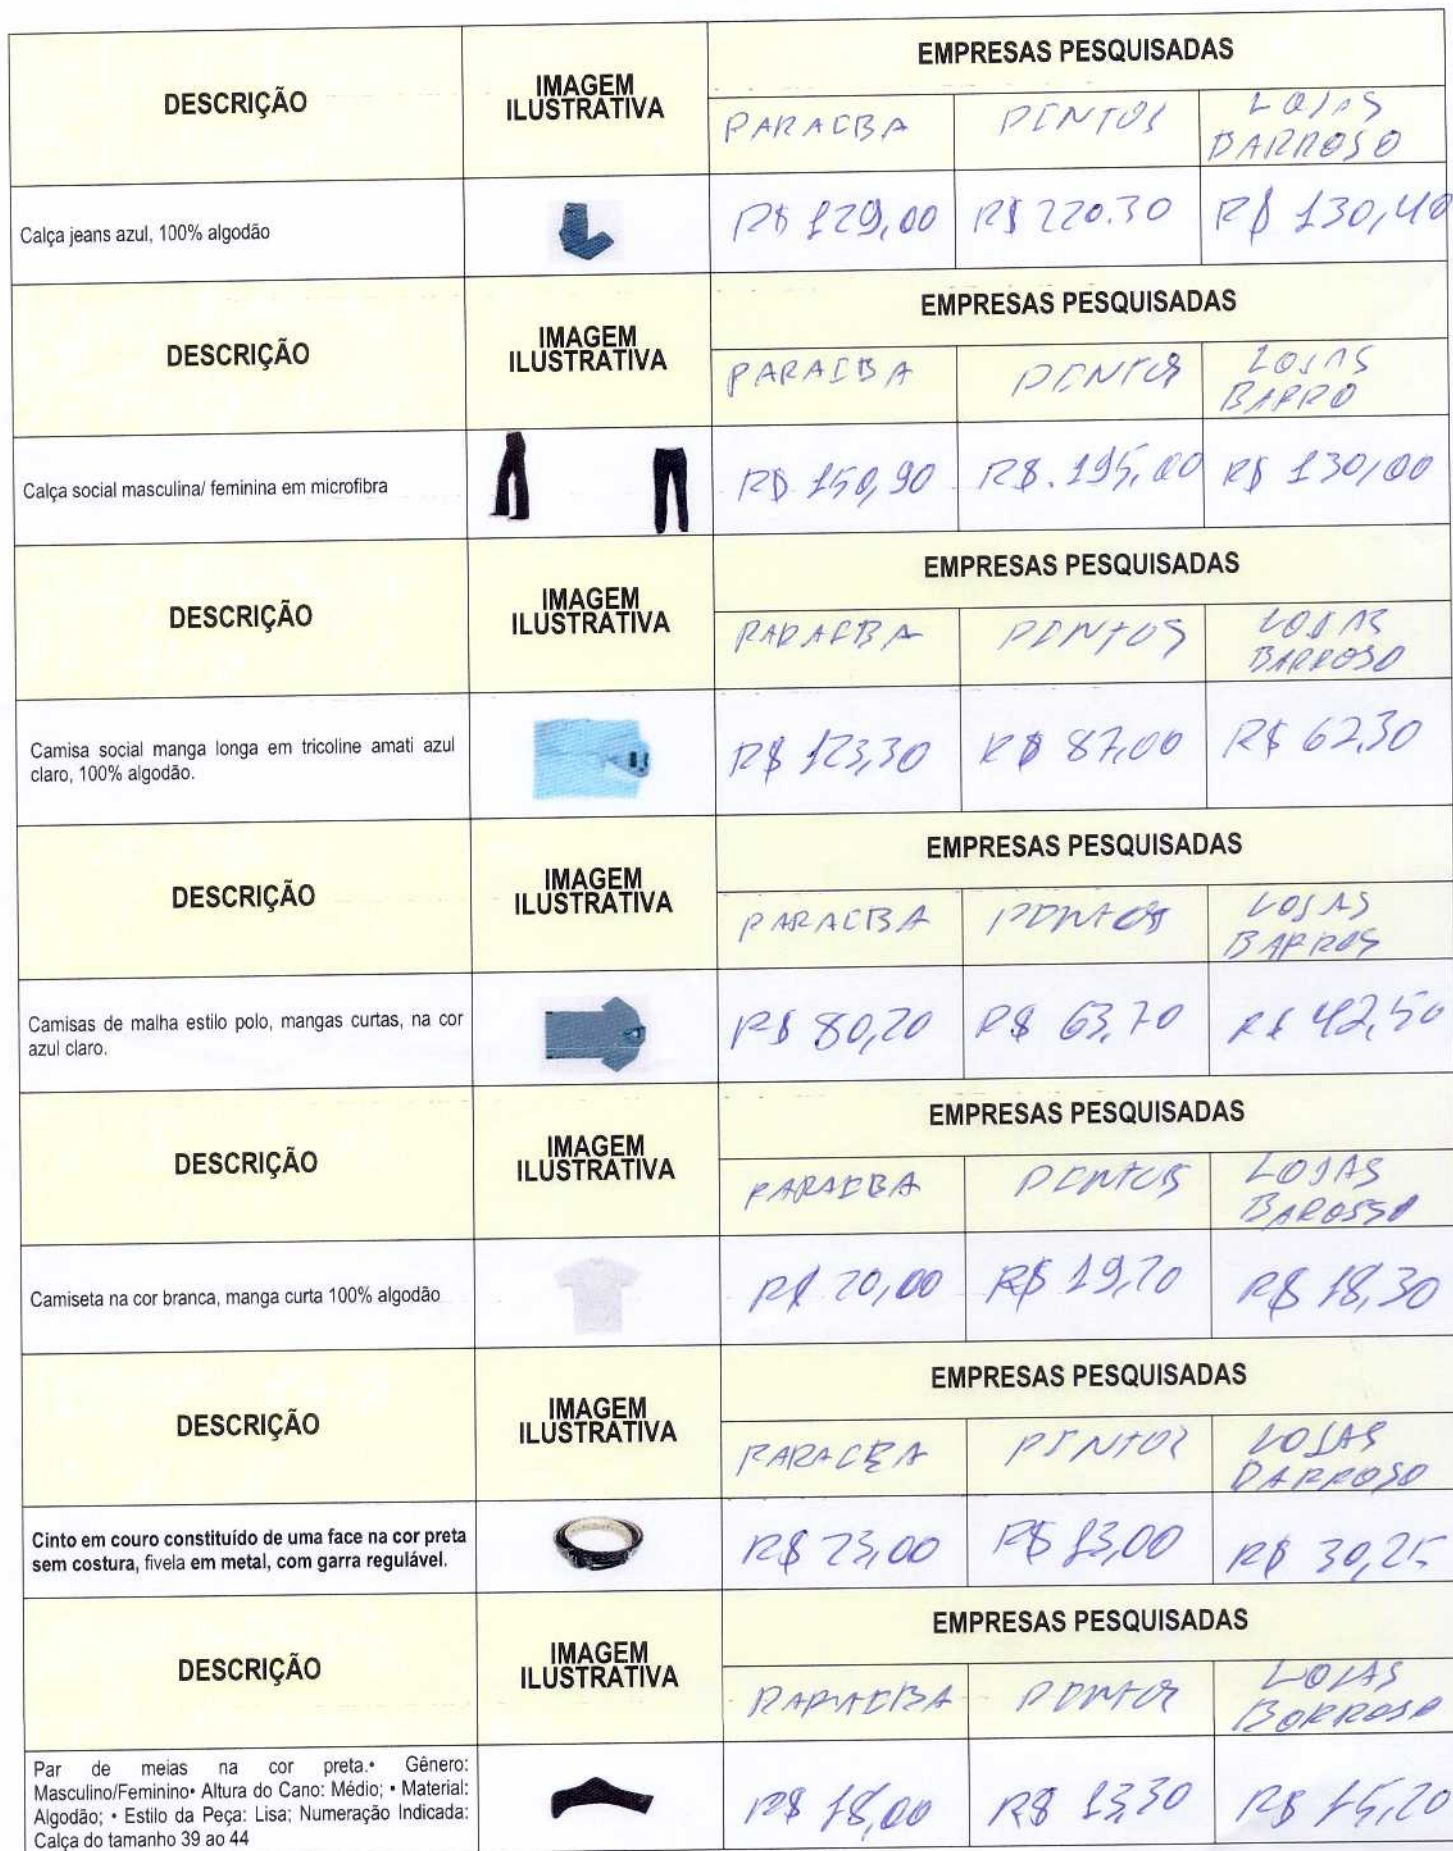 DESCRIÇÃO
IMAGEM
ILUSTRATIVA
EMPRESAS PESQUISADAS
PARAIBA
PINTOS
LOJAS
BARROSO
Calça jeans azul, 100% algodão
R$ 129,00
R$ 220.30
R$ 130,40
DESCRIÇÃO
IMAGEM
ILUSTRATIVA
EMPRESAS PESQUISADAS
PARAIBA
PINTOS
LOJAS
BARRO
Calça social masculina/ feminina em microfibra
R$ 150,90
R$. 195,00
R$ 130,00
DESCRIÇÃO
IMAGEM
ILUSTRATIVA
EMPRESAS PESQUISADAS
PARAIBA
PINTOS
LOJAS
BARROSO
Camisa social manga longa em tricoline amati azul
claro, 100% algodão.
R$ 123,30
R$ 87,00
R$ 62,30
DESCRIÇÃO
IMAGEM
ILUSTRATIVA
EMPRESAS PESQUISADAS
PARAIBA
PINTOS
LOJAS
BARROS
Camisas de malha estilo polo, mangas curtas, na cor
azul claro.
R$ 80,20
R$ 63,70
R$ 42,50
DESCRIÇÃO
IMAGEM
ILUSTRATIVA
EMPRESAS PESQUISADAS
PARAIBA
PINTOS
LOJAS
BAROSSO
Camiseta na cor branca, manga curta 100% algodão
R$ 20,00
R$ 19,20
R$ 18,30
DESCRIÇÃO
IMAGEM
ILUSTRATIVA
EMPRESAS PESQUISADAS
PARAIBA
PINTOS
LOJAS
BARROSO
Cinto em couro constituído de uma face na cor preta
sem costura, fivela em metal, com garra regulável.
R$ 23,00
R$ 13,00
R$ 30,25
DESCRIÇÃO
IMAGEM
ILUSTRATIVA
EMPRESAS PESQUISADAS
PARAIBA
PINTOS
LOJAS
BORROSO
Par de meias na cor preta.• Gênero:
Masculino/Feminino• Altura do Cano: Médio; • Material:
Algodão; • Estilo da Peça: Lisa; Numeração Indicada:
Calça do tamanho 39 ao 44
R$ 18,00
R$ 13,30
R$ 15,20